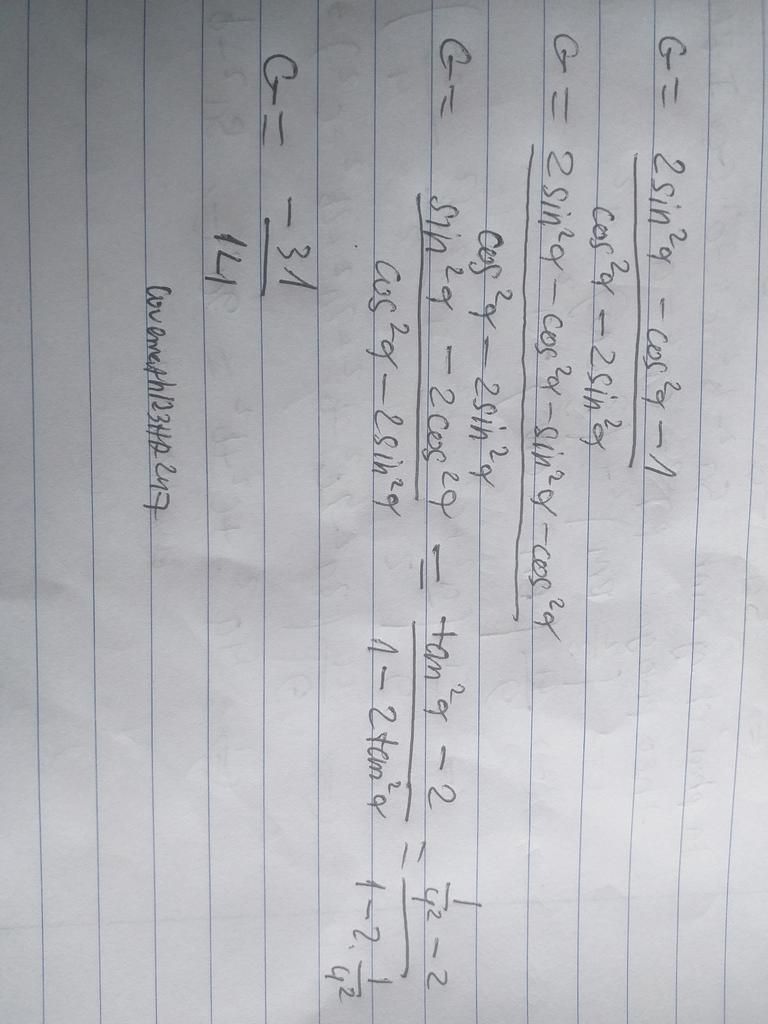 G = (2sin²α - cos²α - 1) / (cos²α - 2sin²α)
G = (2sin²α - cos²α - sin²α - cos²α) / (cos²α - 2sin²α)
G = (sin²α - 2cos²α) / (cos²α - 2sin²α) = (tan²α - 2) / (1 - 2tan²α) = (1/4² - 2) / (1 - 2·1/4²)
G = -31 / 14